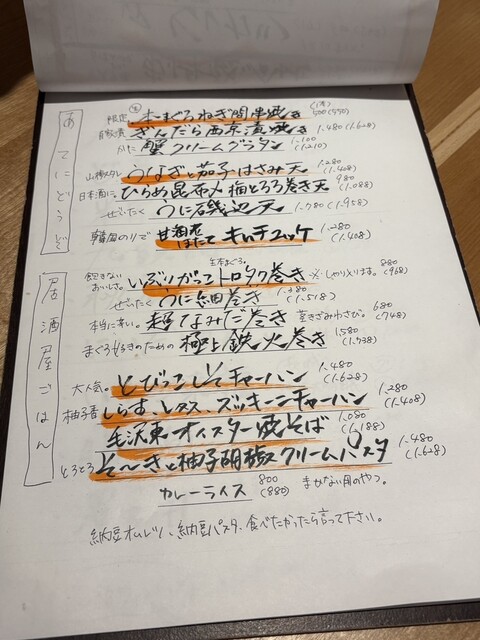 あてにどうぞ
限定 本まぐろねぎ間串焼き (1本) 500 (550)
自家漬 ぎんだら西京漬焼き 1.480 (1.628)
かに 蟹クリームグラタン 1.100 (1.210)
山椒タレ うなぎと茄子はさみ天 1.280 (1.408)
日本酒に。 ひらめ昆布〆梅とろろ巻き天 980 (1.088)
ぜいたく うに磯辺天 1.780 (1.958)
韓国のりで 甘海老 ほたて キムチユッケ 1.280 (1.408)
居酒屋ごはん
生本まぐろ。
飽きない おいしさ。 いぶりがっこトロタク巻き ※しゃり入ります。 880 (968)
ぜいたく うに 巻き 1.380 (1.518)
本当に辛い。 超なみだ巻き 茎きざみわさび。 680 (748)
まぐろ好きのための 極上鉄火巻き 1.580 (1.738)
大人気。 とびっこしそチャーハン 1.480 (1.628)
柚子香 しらす、レタス、ズッキーニチャーハン 1.280 (1.408)
毛沢東オイスター焼そば 1.080 (1.188)
とろとろ そ〜きと柚子胡椒クリームパスタ 1.480 (1.628)
カレーライス 800 (880) まかない用のやつ。
納豆オムレツ、納豆パスタ、食べたかったら言って下さい。